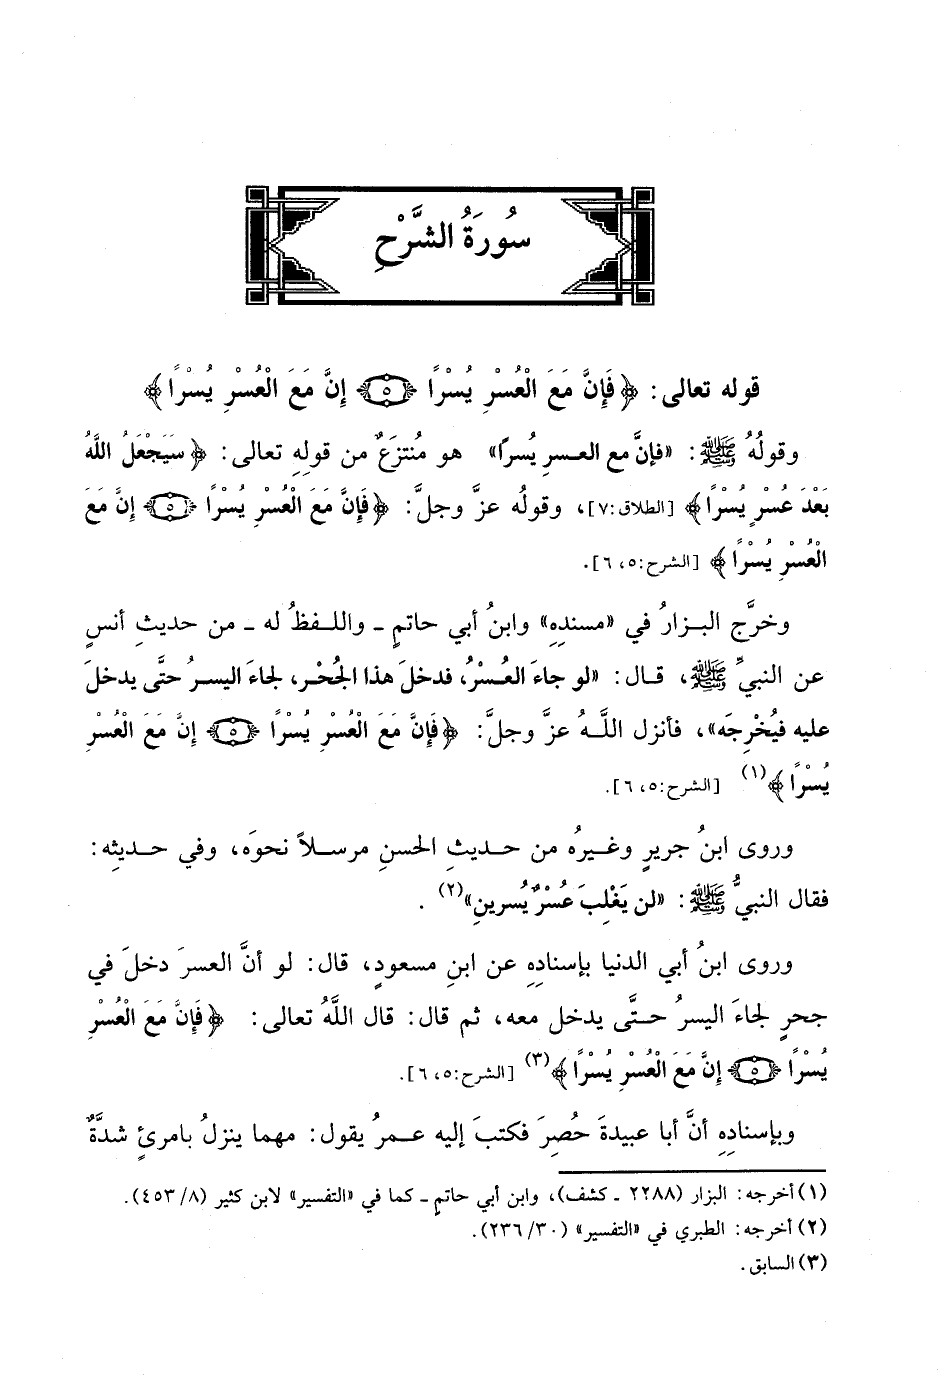 سُورَةُ الشَّرْحِ
قوله تعالى: ﴿فَإِنَّ مَعَ الْعُسْرِ يُسْرًا ﴿٥﴾ إِنَّ مَعَ الْعُسْرِ يُسْرًا﴾
وقولُهُ ﷺ: «فإنَّ مع العسرِ يُسرًا» هو مُنتزَعٌ من قولِهِ تعالى: ﴿سَيَجْعَلُ اللَّهُ
بَعْدَ عُسْرٍ يُسْرًا﴾ [الطلاق:٧]، وقولُه عزَّ وجلَّ: ﴿فَإِنَّ مَعَ الْعُسْرِ يُسْرًا ﴿٥﴾ إِنَّ مَعَ
الْعُسْرِ يُسْرًا﴾ [الشرح:٥، ٦].
وخرَّج البزارُ في «مسندِهِ» وابنُ أبي حاتمٍ ـ واللفظُ له ـ من حديثِ أنسٍ
عن النبيِّ ﷺ، قال: «لو جاءَ العُسْرُ، فدخلَ هذا الجُحْر، لجاءَ اليسرُ حتَّى يدخلَ
عليه فيُخْرِجَه»، فأنزل اللَّهُ عزَّ وجلَّ: ﴿فَإِنَّ مَعَ الْعُسْرِ يُسْرًا ﴿٥﴾ إِنَّ مَعَ الْعُسْرِ
يُسْرًا﴾(١) [الشرح:٥، ٦].
وروى ابنُ جريرٍ وغيرُه من حديثِ الحسنِ مرسلاً نحوَه، وفي حديثِه:
فقال النبيُّ ﷺ: «لن يَغْلِبَ عُسْرٌ يُسرينِ»(٢).
وروى ابنُ أبي الدنيا بإسنادِهِ عن ابنِ مسعودٍ، قال: لو أنَّ العسرَ دخلَ في
جحرٍ لجاءَ اليسرُ حتَّى يدخل معه، ثم قال: قال اللَّهُ تعالى: ﴿فَإِنَّ مَعَ الْعُسْرِ
يُسْرًا ﴿٥﴾ إِنَّ مَعَ الْعُسْرِ يُسْرًا﴾(٣) [الشرح:٥، ٦].
وبإسنادِهِ أنَّ أبا عبيدةَ حُصِرَ فكتبَ إليه عمرُ يقول: مهما ينزلُ بامرئٍ شدَّةٌ
(١) أخرجه: البزار (٢٢٨٨ ـ كشف)، وابن أبي حاتم ـ كما في «التفسير» لابن كثير (٨/ ٤٥٣).
(٢) أخرجه: الطبري في «التفسير» (٣٠/ ٢٣٦).
(٣) السابق.